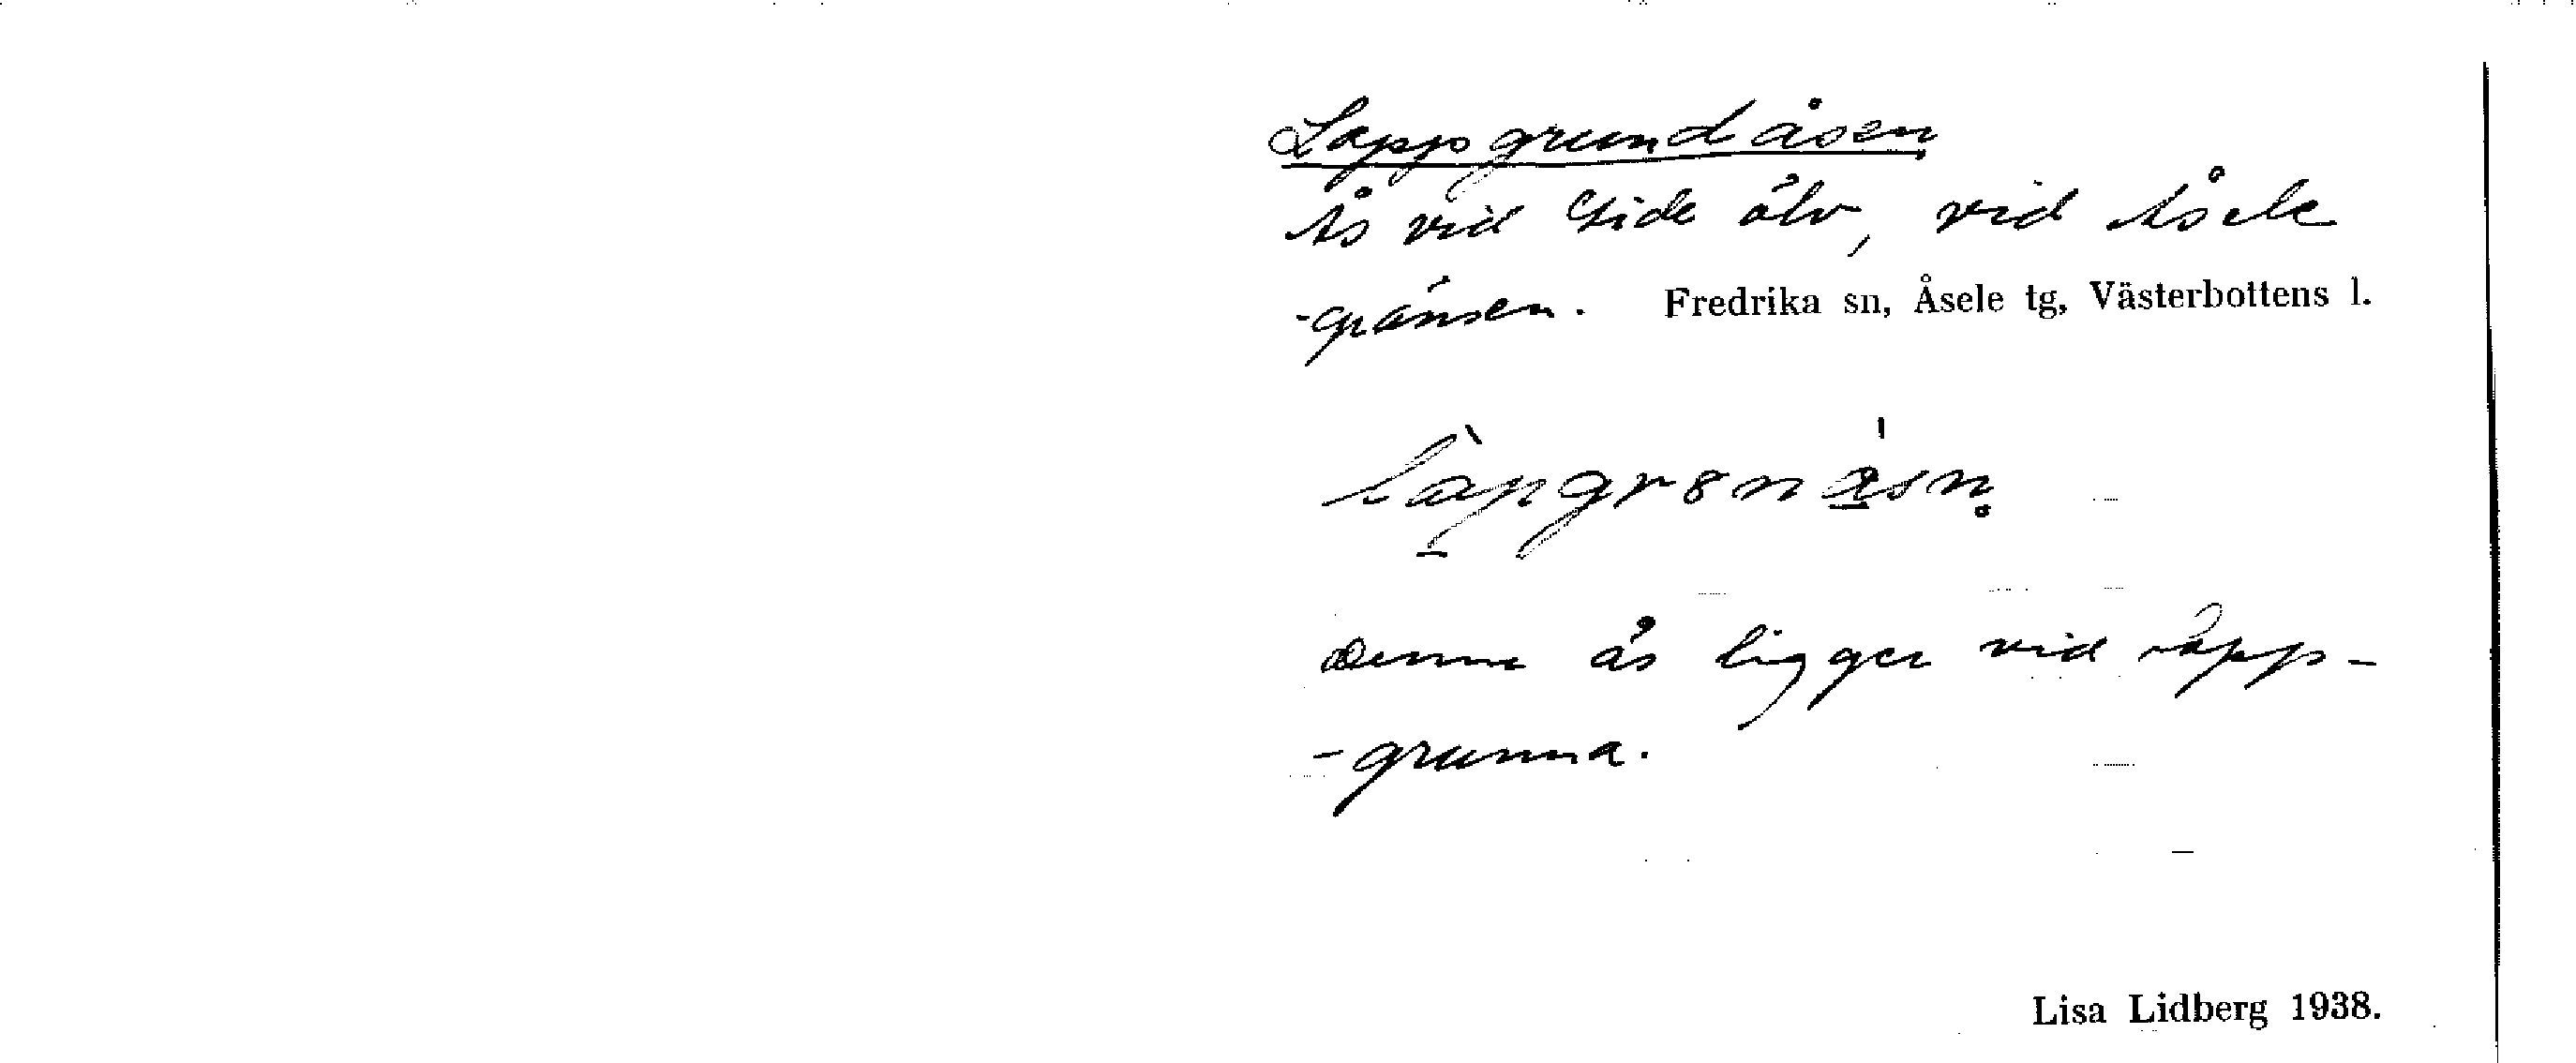 Lappgrundåsen
Ås vid Gide älv, vid Åsele
-gränsen. Fredrika sn, Åsele tg, Västerbottens l.
Denna ås ligger vid Lapp-
-grunna.
Lisa Lidberg 1938.